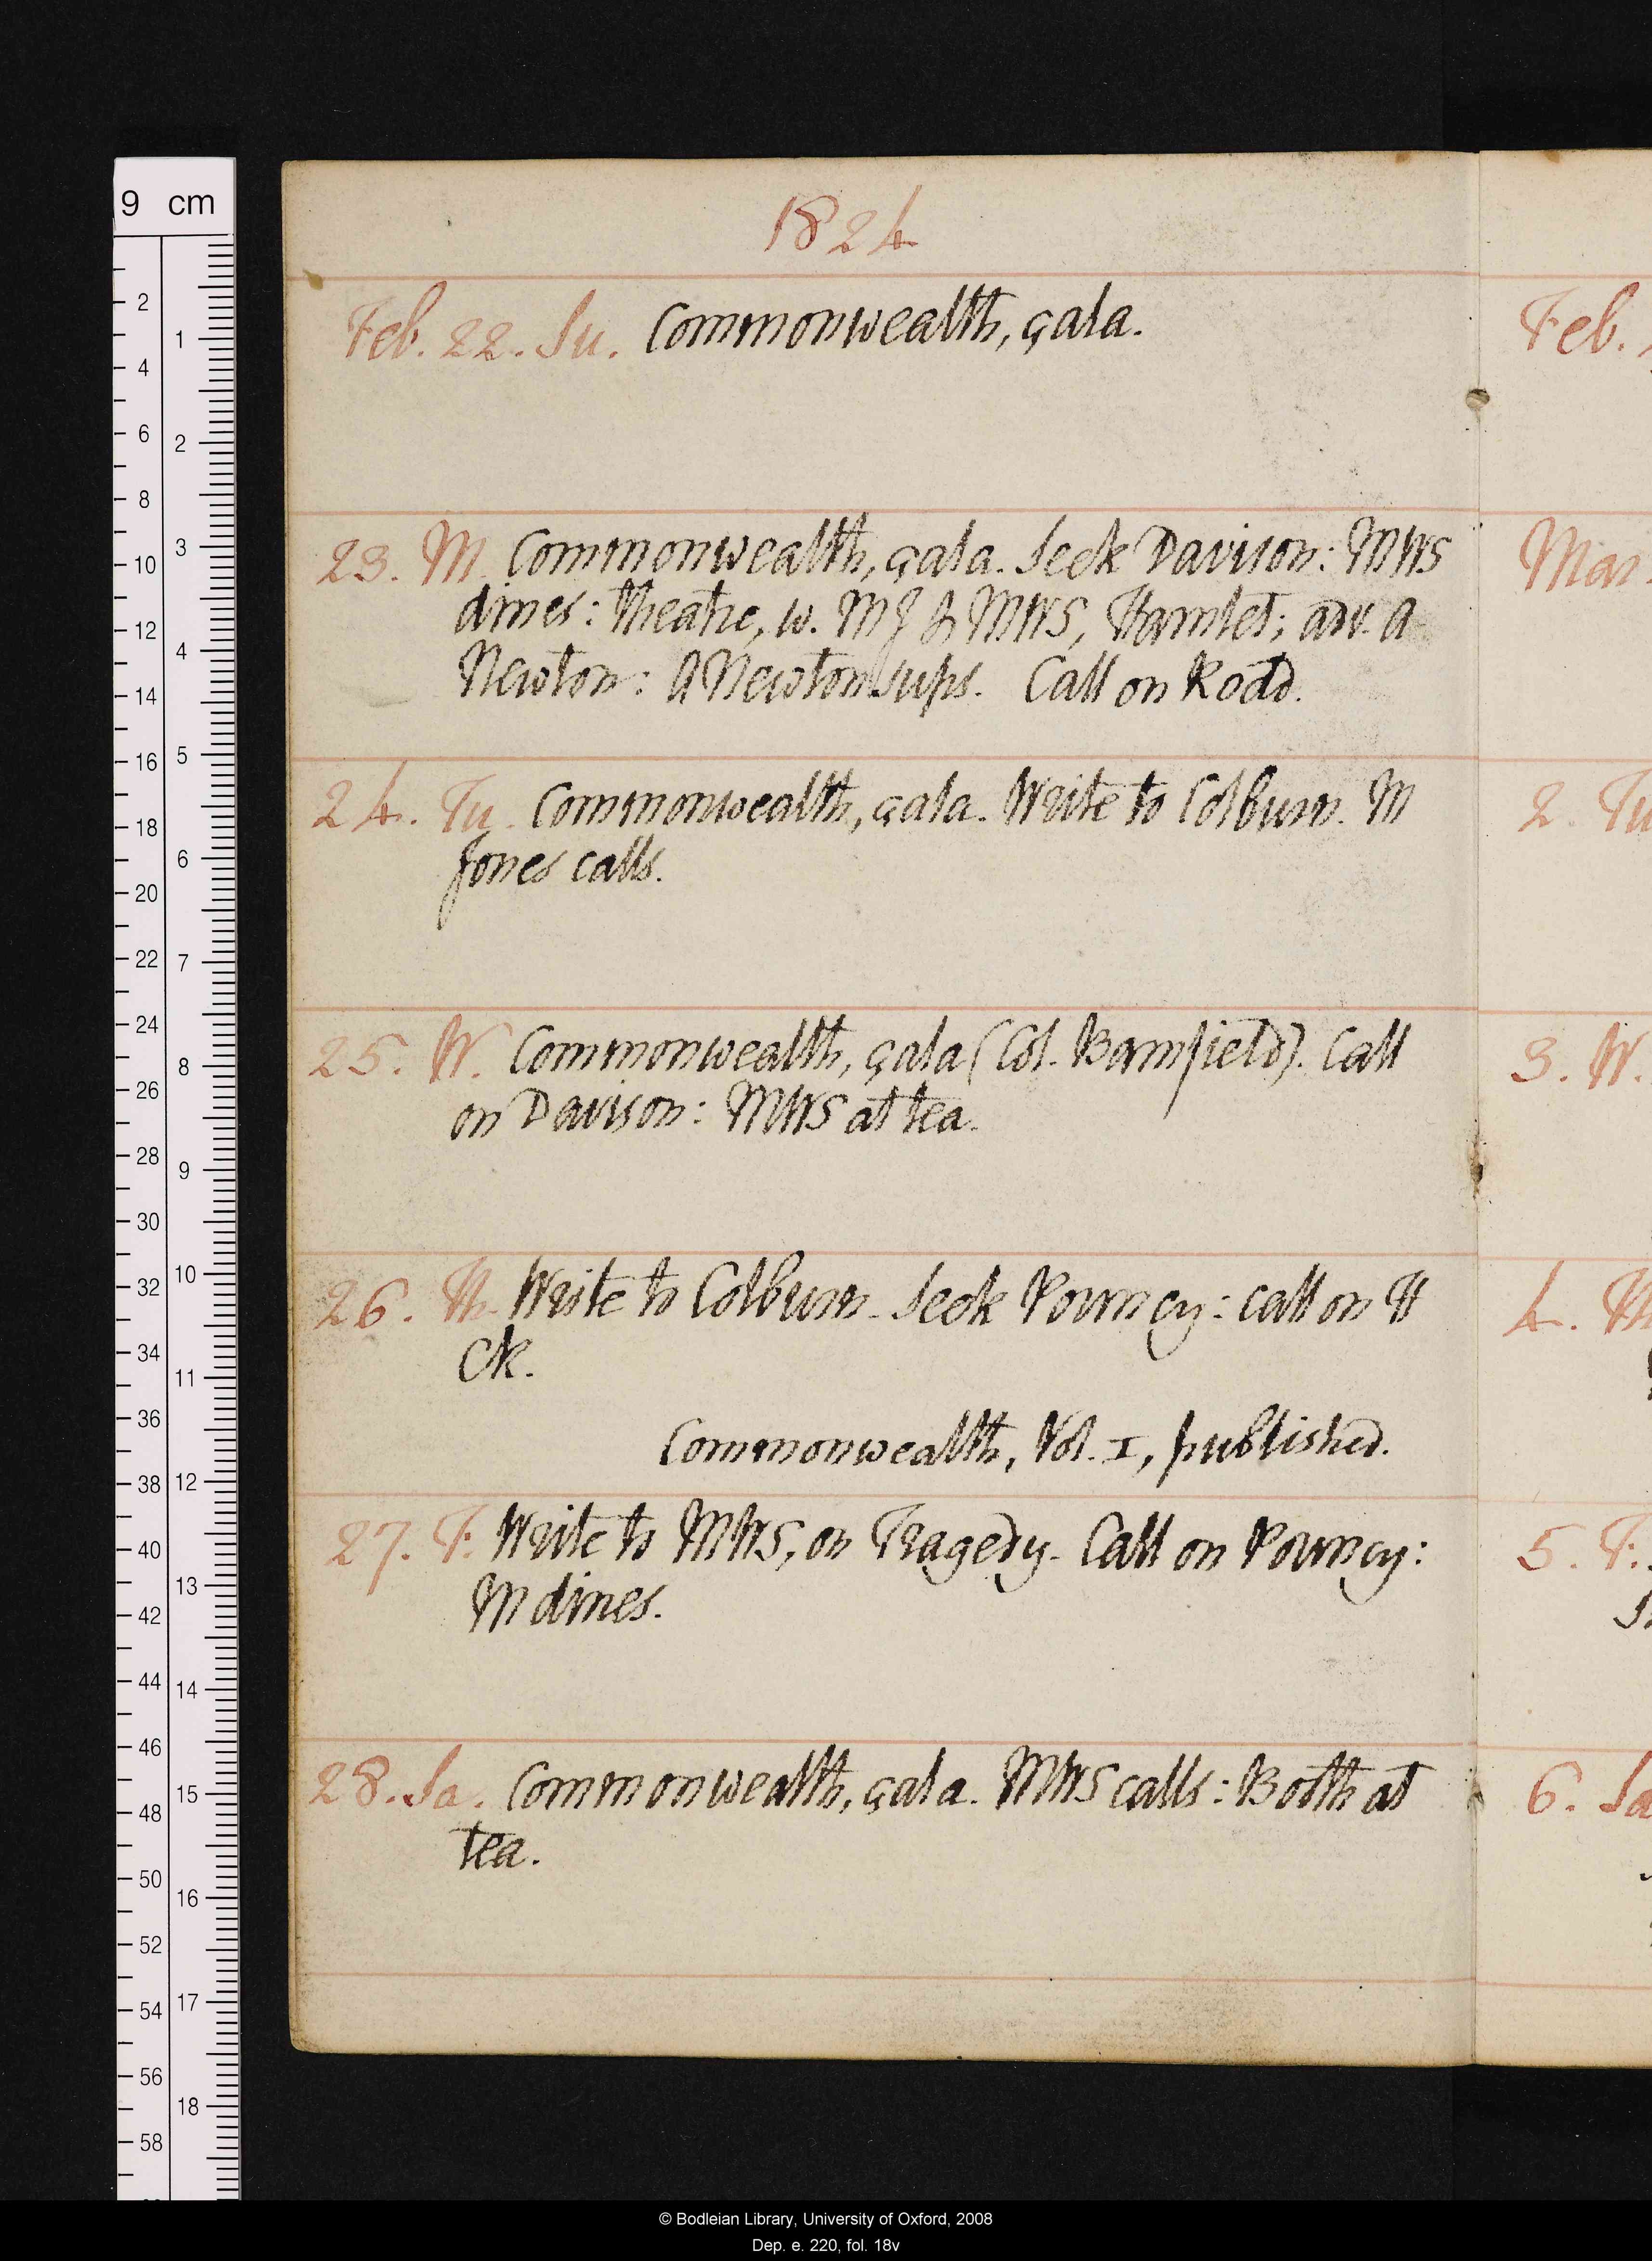 1824
Feb. 22. Su. Commonwealth, çala.
23. M. Commonwealth, çala. Seek Davison: MWS
dines: theatre, w. MJ & MWS, Hamlet; adv. A
Newton: A Newton sups. Call on Rodd.
24. Tu. Commonwealth, çala. Write to Colburn. M
Jones calls.
25. W. Commonwealth, çala (Col. Bamfield). Call
on Davison: MWS at tea.
26. Th. Write to Colburn. Seek Pouncy: call on H
Ck.
Commonwealth, Vol. I, published.
27. F. Write to MWS, on Tragedy. Call on Pouncy:
M dines.
28. Sa. Commonwealth, çala. MWS calls: Both at
tea.
Feb.
Mar.
2. Tu
3. W.
4. Th
5. F.
6. Sa
9 cm
2
4
6
8
10
12
14
16
18
20
22
24
26
28
30
32
34
36
38
40
42
44
46
48
50
52
54
56
58
1
2
3
4
5
6
7
8
9
10
11
12
13
14
15
16
17
18
© Bodleian Library, University of Oxford, 2008
Dep. e. 220, fol. 18v